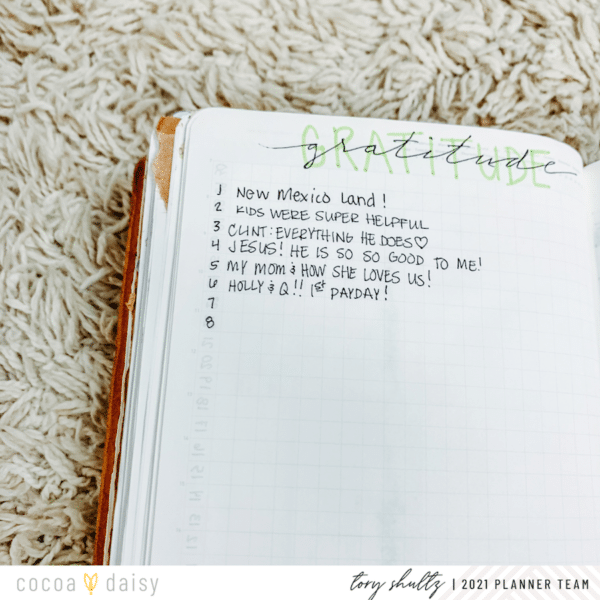 GRATITUDE
gratitude
1 New Mexico Land!
2 KIDS WERE SUPER HELPFUL
3 CLINT: EVERYTHING HE DOES♡
4 JESUS! HE IS SO SO GOOD TO ME!
5 MY MOM & HOW SHE LOVES US!
6 HOLLY & Q!! 1st PAYDAY!
7
8
cocoa daisy
tory shultz | 2021 PLANNER TEAM